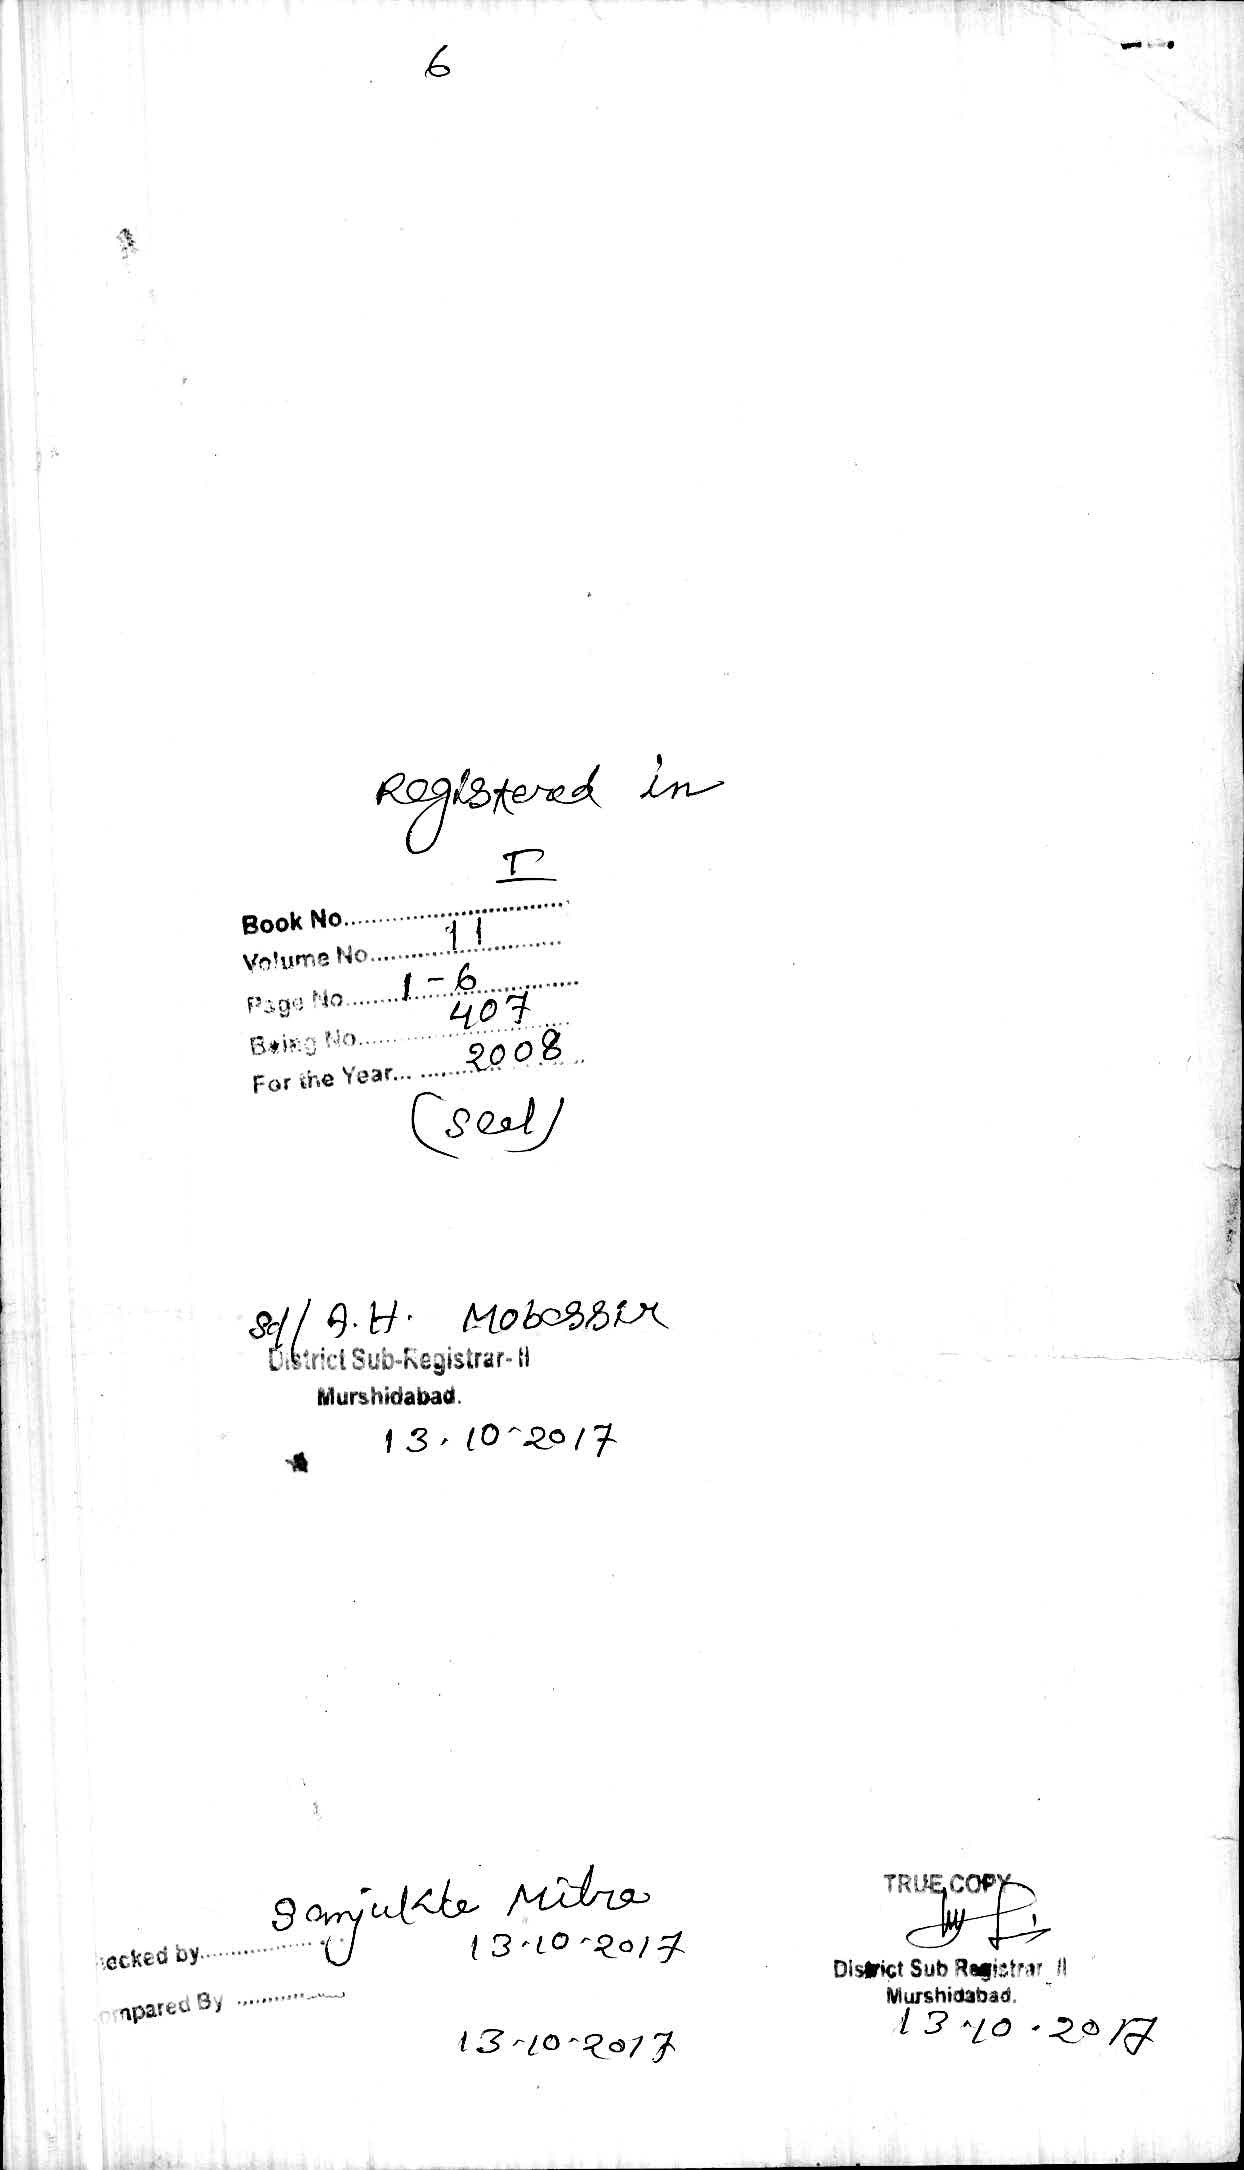 6
Registered in
I
Book No..............................
Volume No......11..............
Page No......1-6..............
Being No......407..............
For the Year... ......2008......
(Seal)
Sd/ A.H. Mobassir
District Sub-Registrar-II
Murshidabad.
13.10-2017
Sanjukta Mitra
ecked by..................
13-10-2017
ompared By ..................
13-10-2017
TRUE COPY
District Sub Registrar II
Murshidabad.
13-10-2017